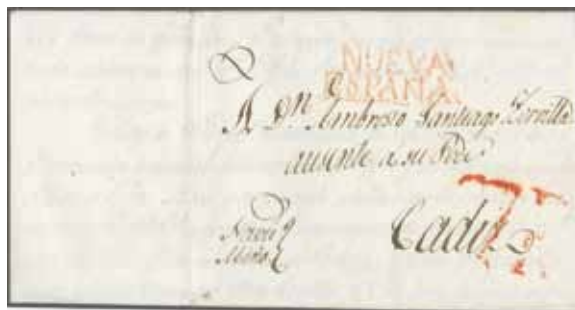 NUEVA
ESPAÑA.
A Dn. Ambrosio Santiago Zorrilla
ausente a su Pode.
Cadiz